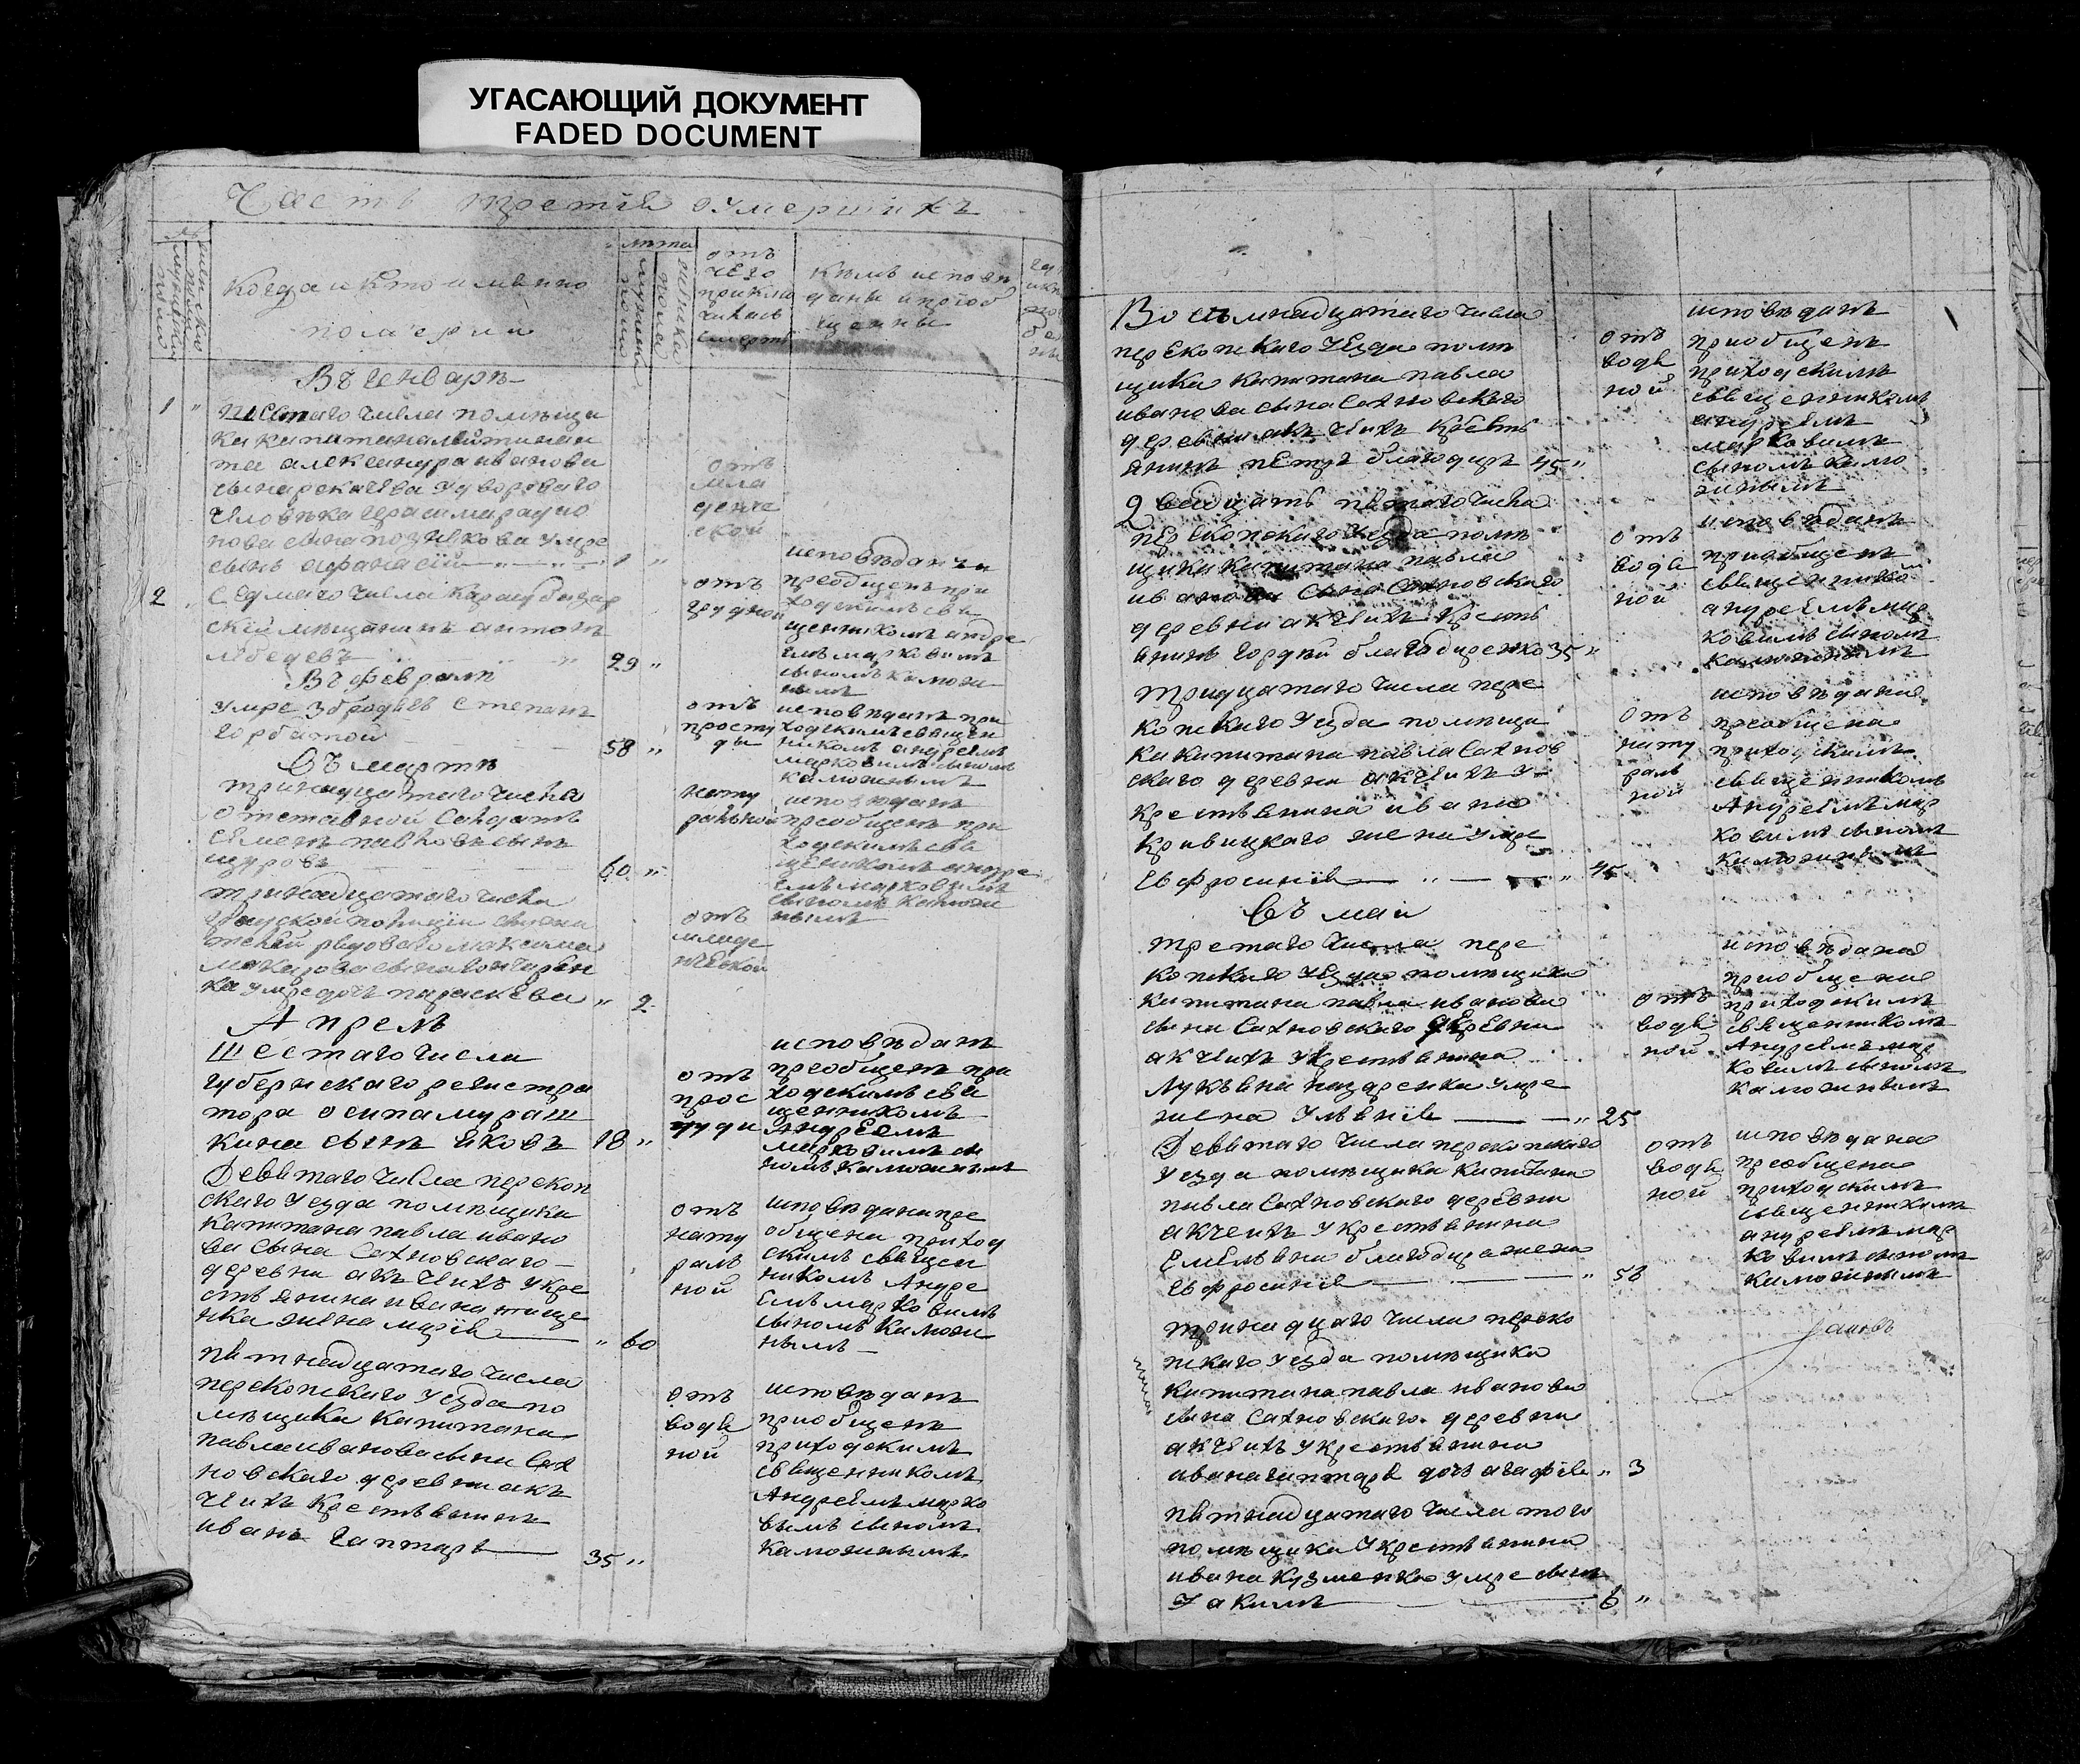 УГАСАЮЩИЙ ДОКУМЕНТ
FADED DOCUMENT
Часть третія оумершихъ
Когда и кто имянно
померли
лѣта
отъ
чего
приклю
чилась
смерть
кѣмъ исповѣ
даны и приоб
щенны
Въ генварѣ
1 " шестаго числа помѣщи
ка капитана лейтинан
та александра иванова
сына
человѣка герасима родио
нова сына умре
сынъ афанасій 1 "
отъ
мла
денче
ской
2 " седмаго числа карасубазар
скій мѣщанинъ антонъ
лебедевъ 29 "
отъ
грудной
исповѣданъ и
преобщенъ при
ходскимъ свя
щенникомъ андре
емъ марковымъ
сыномъ камени
нымъ
Въ февралѣ
умре збродягъ степанъ
горбатой 58 "
отъ
просту
ды
исповѣданъ при
ходскимъ священ
никомъ андреемъ
марковымъ сыномъ
Въ мартѣ
тринадцатаго числа
отставной салдатъ
семенъ павловъ сынъ
щуровъ 60 "
нату
ральной
исповѣданъ
преобщенъ при
ходскимъ свя
щеникомъ андре
емъ марковымъ
сыномъ
нымъ
тринадцатаго числа
полиціи служи
телей рядоваго максима
макарова сына
ка умре дочь параскева " 2
отъ
младе
нческой
Апрель
Шестаго числа
губернскаго регистра
тора осипа мураш
кина сынъ яковъ 18 "
отъ
прос
туды
исповѣданъ
преобщенъ при
ходскимъ свя
щенникомъ
Андреемъ
марковымъ сы
номъ
Девятаго числа перекоп
скаго уезда помѣщика
капитана павла ивано
ва сына Сахновскаго
деревни акъ чеихъ укре
стьянина ивана
нка жена марія " 60
отъ
нату
раль
ной
исповѣдана пре
общена приход
скимъ священ
никомъ Андре
емъ марковымъ
сыномъ
нымъ
пятнадцатаго числа
перекопскаго уезда по
мѣщика капитана
павла иванова сына Сах
новскаго деревни акъ
чеихъ крестьянинъ
иванъ гаптарь 35 "
отъ
водя
ной
исповѣданъ
приобщенъ
приходскимъ
священникомъ
Андреемъ марко
вымъ сыномъ
Восемнадцатаго числа
перекопскаго уезда помѣ
щика капитана павла
иванова сына Сахновскаго
деревни акъ чеихъ кресть
янинъ петръ благодиръ 45 "
отъ
водя
ной
исповѣданъ
приобщенъ
приходскимъ
священникомъ
андреемъ
марковымъ
сыномъ
Двадцать пятаго числа
перекопскаго уезда помѣ
щика капитана павла
иванова сына Сахновскаго
деревни акчеихъ кресть
янинъ гордѣй благодиренко 35 "
отъ
водя
ной
исповѣданъ
приобщенъ
священнико
андреемъ мар
ковымъ сыномъ
тридцатаго числа пере
копскаго уезда помѣщи
ка капитана павла Сахнов
скаго деревни акчеихъ у
крестьянина ивана
кривицкаго жена умре
евфросинія " 45
отъ
нату
раль
ной
исповѣдана
преобщена
приходскимъ
священникомъ
Андреемъ мар
ковымъ сыномъ
Въ маи
третаго числа пере
копскаго уезда помѣщика
капитана павла иванова
сына Сахновскаго деревни
акчеихъ укрестьянина
лукьяна назаренка умре
жена ульянія " 25
отъ
водя
ной
исповѣдана
приобщена
приходскимъ
священникомъ
Андреемъ мар
ковымъ сыномъ
Девятаго числа перекопскаго
уезда помѣщика капитана
павла Сахновскаго деревни
акчеихъ укрестьянина
Емельяна благодира жена
евфросинія " 58
отъ
водя
ной
исповѣдана
преобщена
приходскимъ
священникомъ
андреемъ мар
ковымъ сыномъ
тринадцаго числа переко
пскаго уезда помѣщика
капитана павла иванова
сына Сахновскаго деревни
акчеихъ укрестьянина
ивана гаптаря дочь агафія " 3
пятнадцатаго числа того
помѣщика укрестьянина
ивана кузменко умре сынъ
уакимъ 6 "